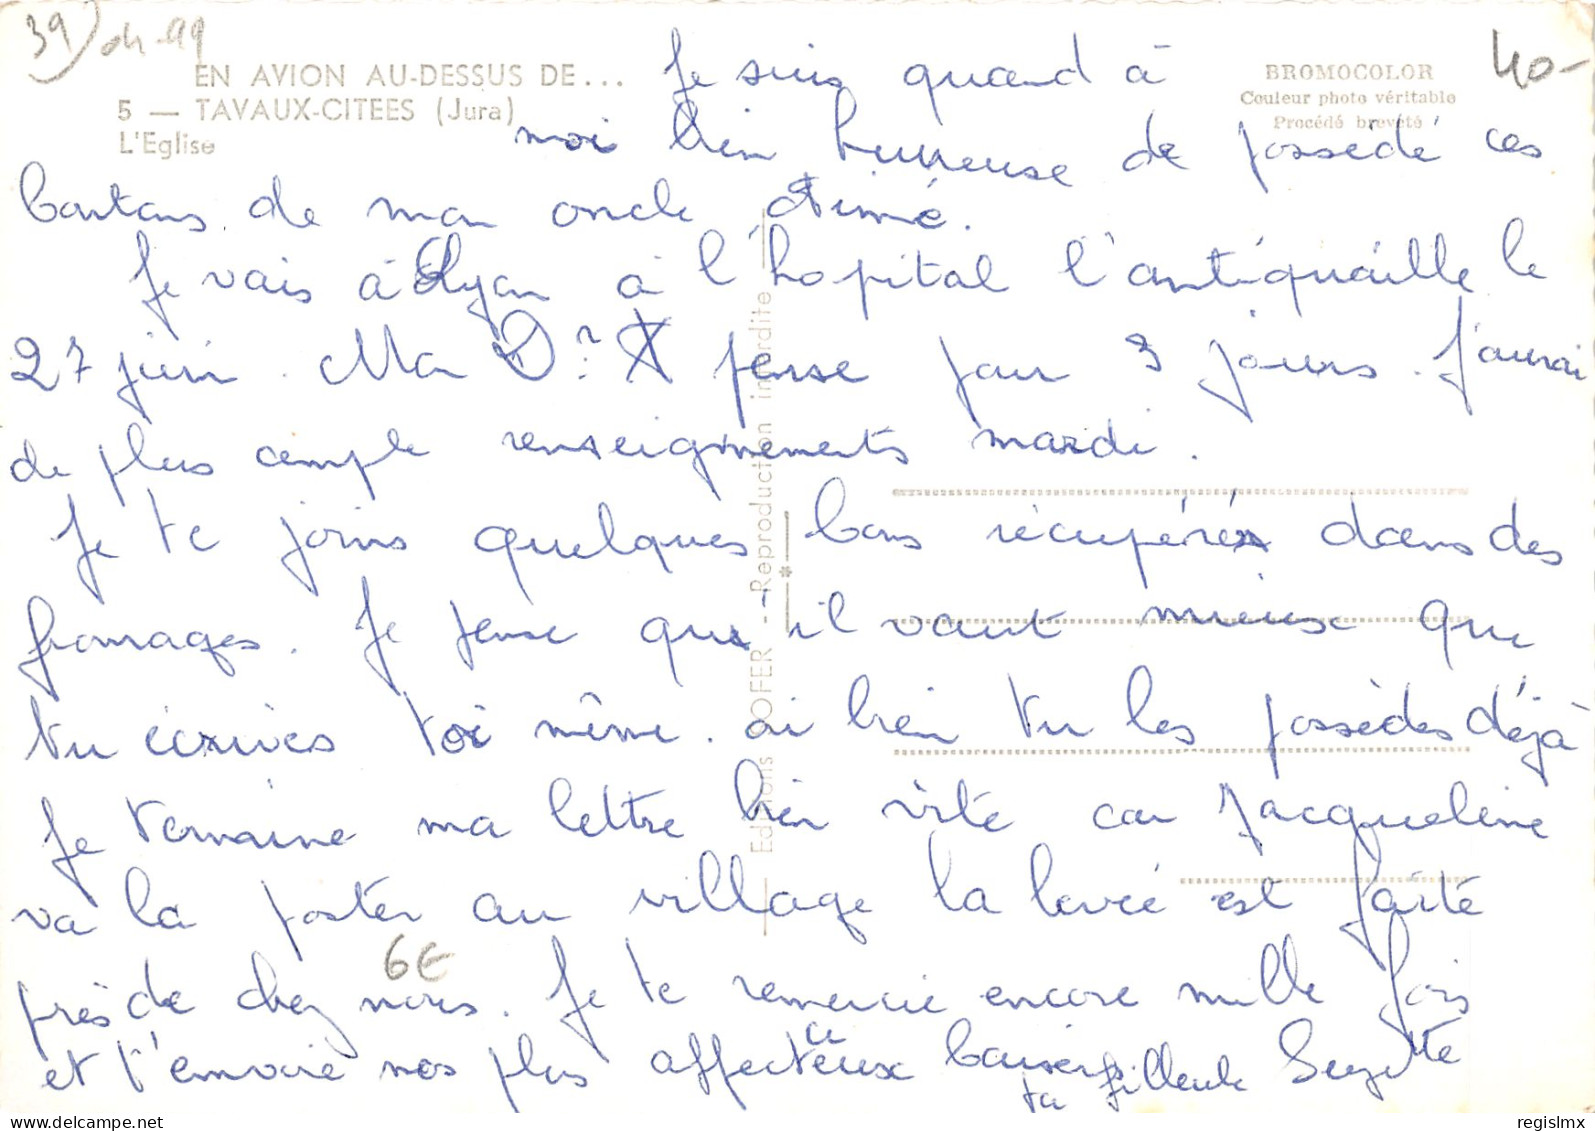 39) 04-99
EN AVION AU-DESSUS DE...
5 — TAVAUX-CITEES (Jura)
L'Eglise
BROMOCOLOR
Couleur photo véritable
Procédé breveté
40-
Je suis quand à
moi bien heureuse de possédé ces
boutons de mon oncle Aimé.
Je vais à Lyon à l'hopital l'antiquaille le
27 juin. Ma Dr X pense pour 3 jours. J'aurai
de plus ample renseignements mardi.
Je te joins quelques bons récupérés dans des
fromages. Je pense qu'il vaut mieux que
tu écrives toi même. ou bien tu les possèdes déjà
Je termine ma lettre bien vite car Jacqueline
va la poster au village la levée est faite
près de chez nous. Je te remercie encore mille fois
et t'envoie nos plus affectueux baisers
ta filleule Suzette
6€
Editions SOFER - Reproduction interdite
regislmx